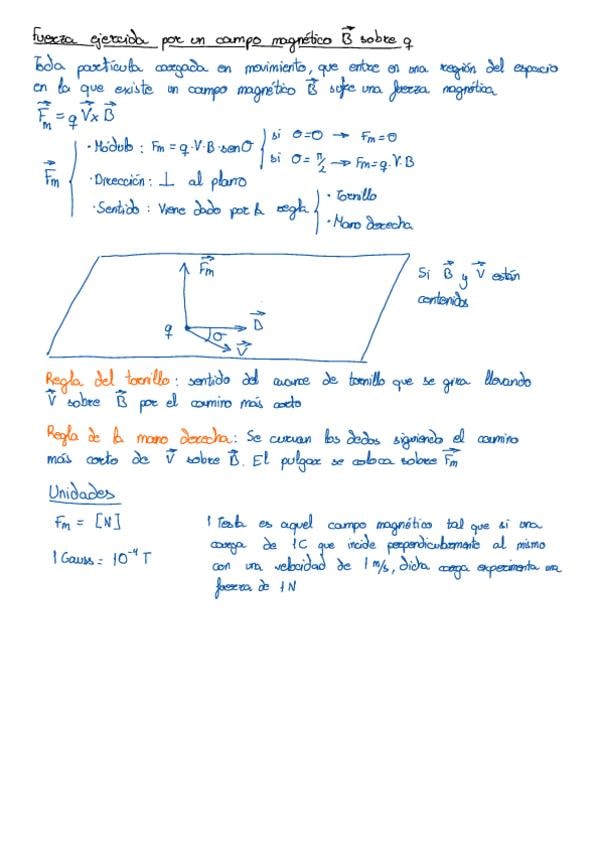 Fuerza ejercida por un campo magnético B⃗ sobre q
Toda partícula cargada en movimiento, que entre en una región del espacio
en la que existe un campo magnético B⃗ sufre una fuerza magnética
F⃗m = q V⃗ x B⃗
F⃗m
· Módulo : Fm = q · V · B · senσ
si σ=0 → Fm=0
si σ= π/2 → Fm=q·V·B
· Dirección : ⊥ al plano
· Sentido : Viene dado por la regla
· Tornillo
· Mano derecha
F⃗m
q
B⃗
σ
V⃗
Si B⃗ y V⃗ están
contenidos
Regla del tornillo : sentido del avance de tornillo que se gira llevando
V⃗ sobre B⃗ por el camino más corto
Regla de la mano derecha : Se curvan los dedos siguiendo el camino
más corto de V⃗ sobre B⃗. El pulgar se coloca sobre F⃗m
Unidades
Fm = [N]
1 Gauss = 10⁻⁴ T
1 Tesla es aquel campo magnético tal que si una
carga de 1C que incide perpendicularmente al mismo
con una velocidad de 1 m/s, dicha carga experimenta una
fuerza de 1N